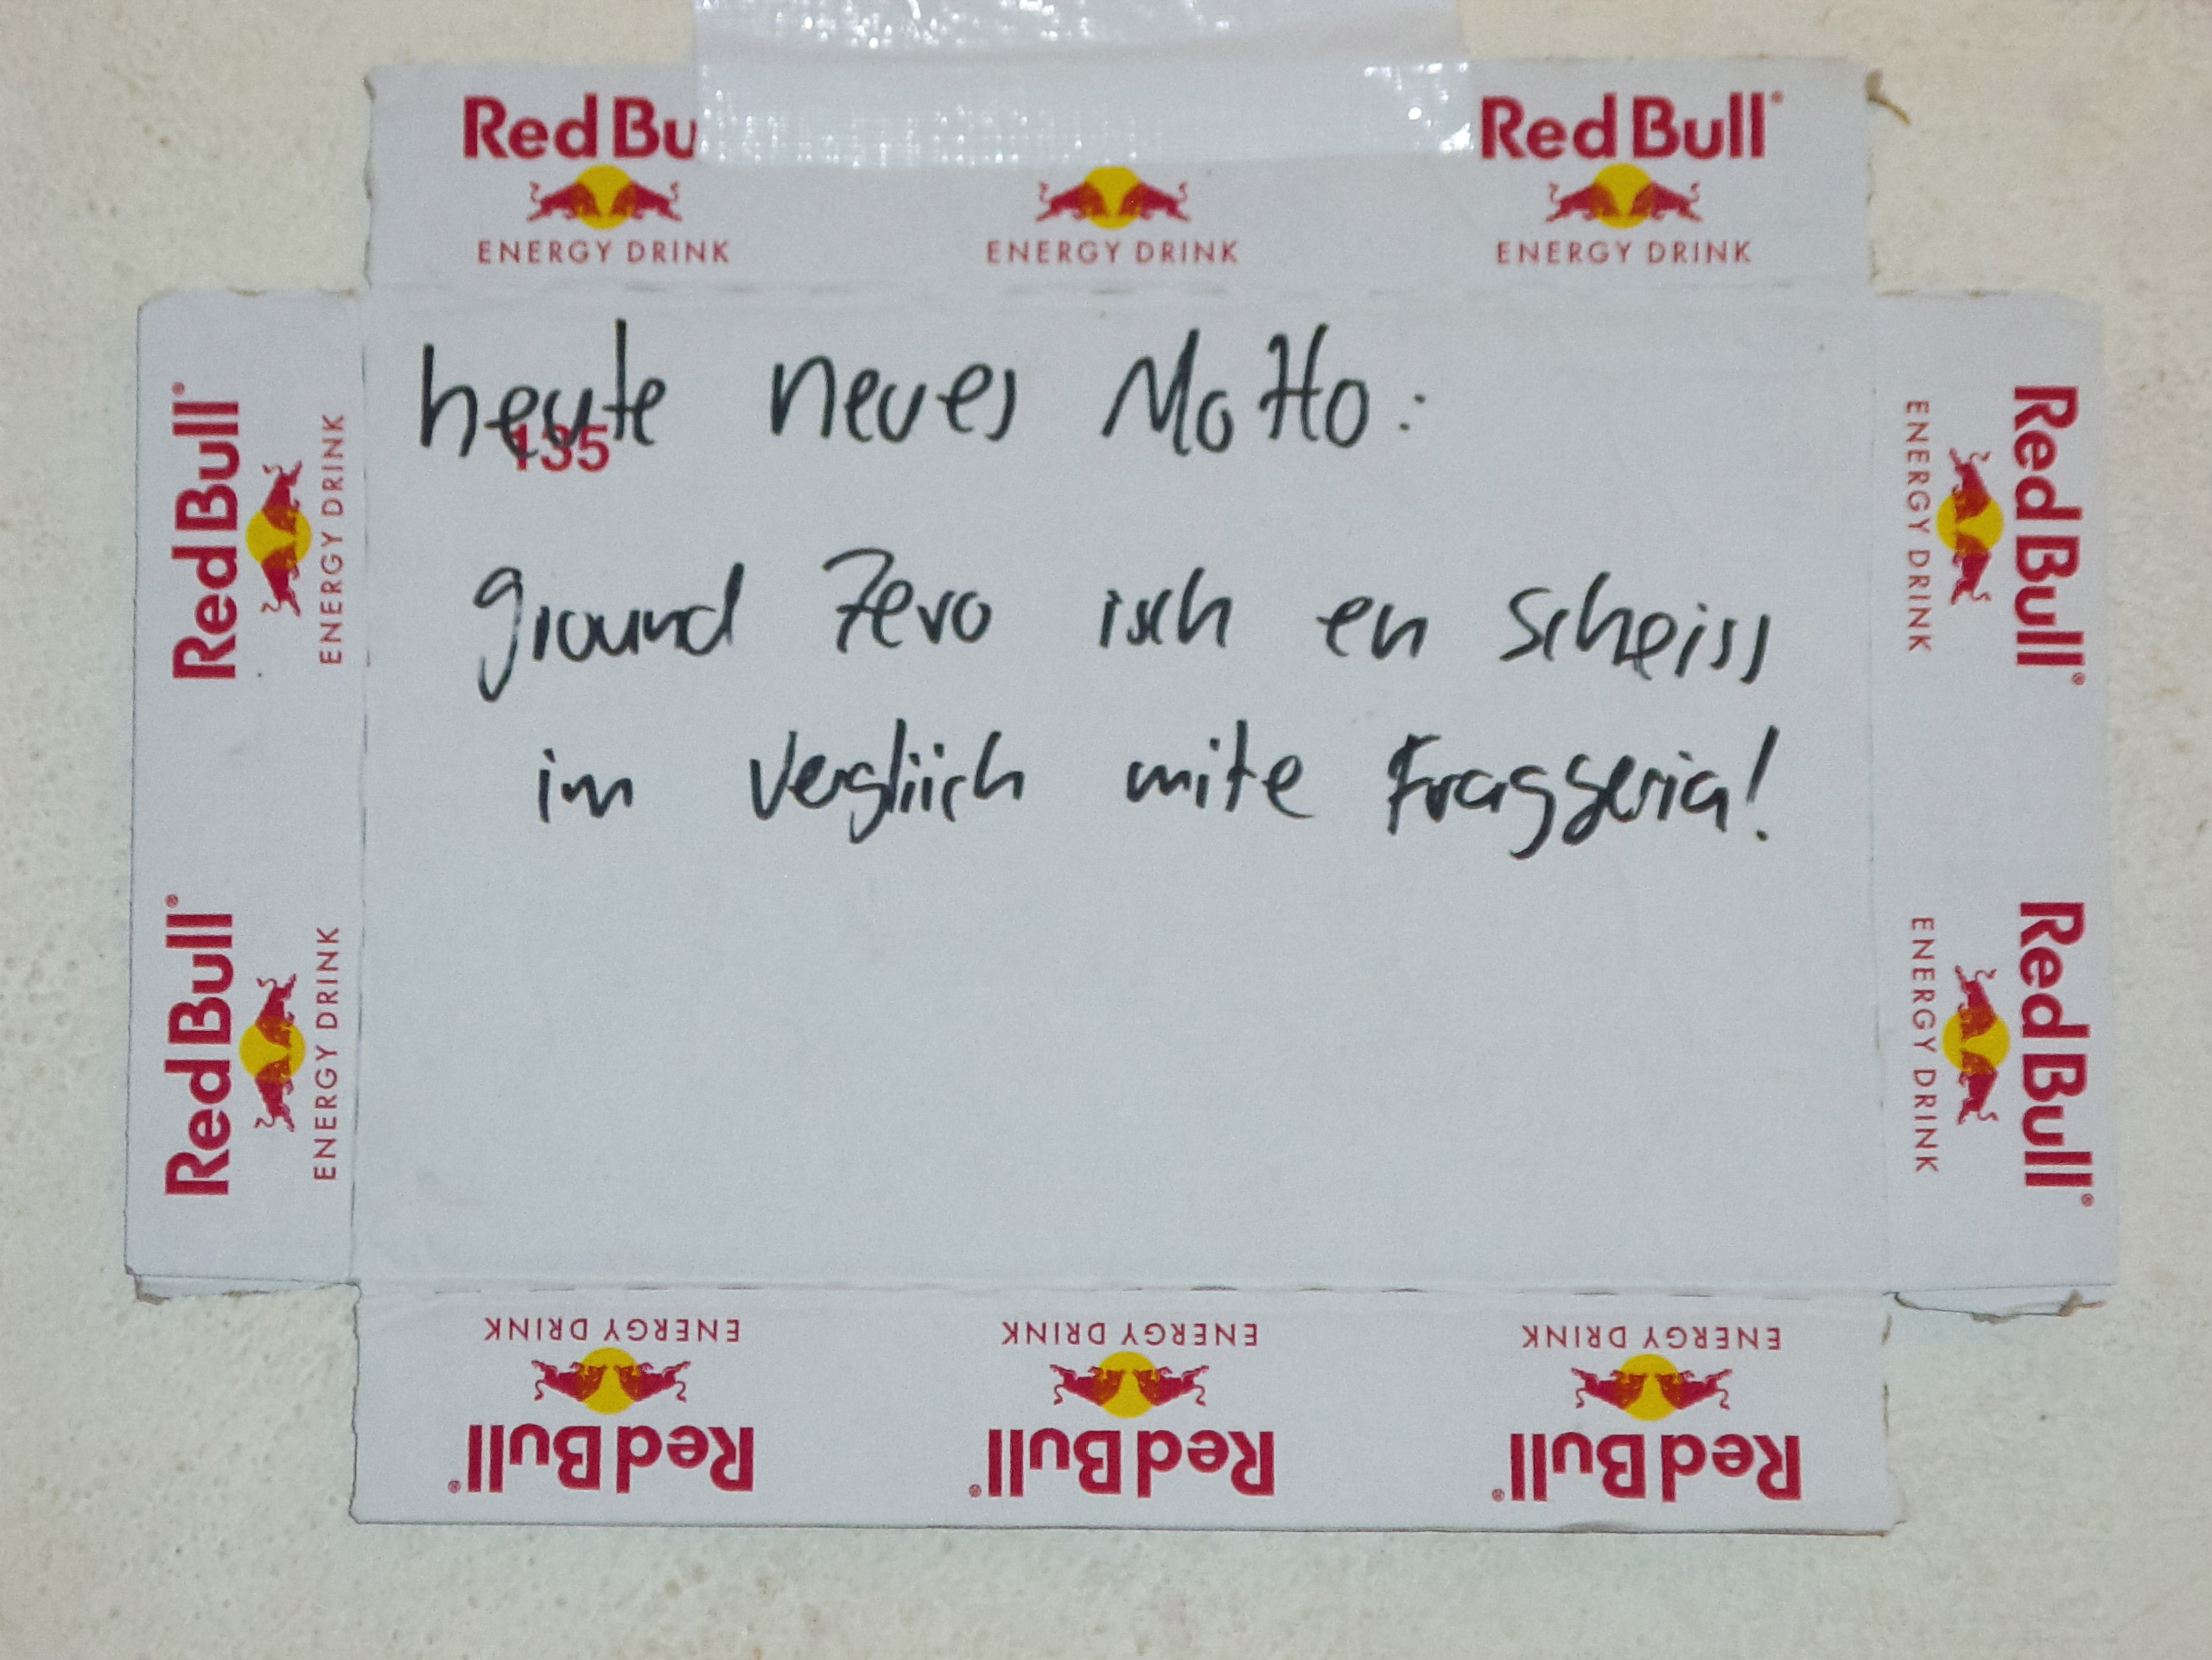 Red Bu
Red Bull®
ENERGY DRINK
ENERGY DRINK
ENERGY DRINK
heute neues Motto:
135
ground Zero isch en scheiss
im vergliich mite Fraggeria!
Red Bull®
ENERGY DRINK
Red Bull®
ENERGY DRINK
Red Bull®
ENERGY DRINK
Red Bull®
ENERGY DRINK
ENERGY DRINK
Red Bull®
ENERGY DRINK
Red Bull®
ENERGY DRINK
Red Bull®